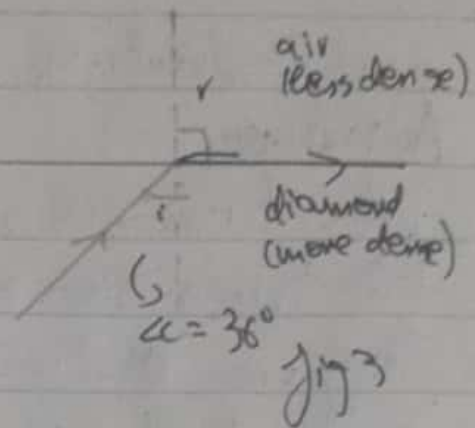 air
(less dense)
r
i
diamond
(more dense)
= 36°
fig 3